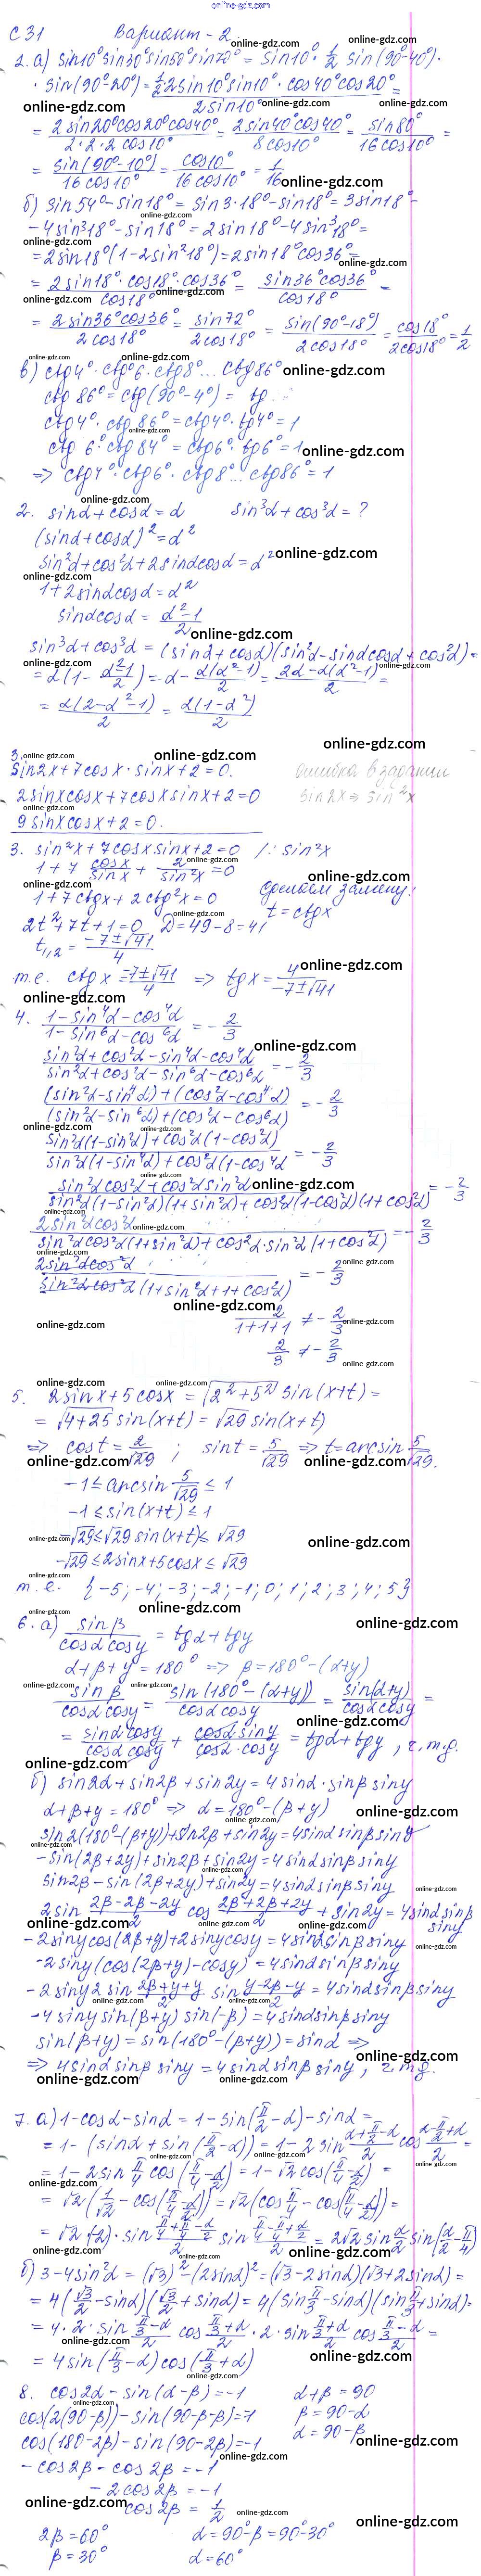 online-gdz.com
С 31 Вариант - 2.
2. а) sin10° sin30° sin50° sin70° = sin10° · 1/2 sin(90°-40°) ·
· sin(90°-20°) = 1/2 2sin10° sin10° · cos40° cos20° / 2sin10° =
= 2sin20° cos20° cos40° / 2·2·2 cos10° = 2sin40° cos40° / 8cos10° = sin80° / 16cos10° =
= sin(90°-10°) / 16cos10° = cos10° / 16cos10° = 1/16
б) sin54° - sin18° = sin3·18° - sin18° = 3sin18° -
- 4sin³18° - sin18° = 2sin18° - 4sin³18° =
= 2sin18°(1-2sin²18°) = 2sin18° cos36° =
= 2sin18° · cos18° · cos36° / cos18° = sin36° cos36° / cos18° =
= 2sin36° cos36° / 2cos18° = sin72° / 2cos18° = sin(90°-18°) / 2cos18° = cos18° / 2cos18° = 1/2
в) ctg4° · ctg6° · ctg8° ... ctg86°
ctg86° = ctg(90°-4°) = tg
ctg4° · ctg86° = ctg4° · tg4° = 1
ctg6° · ctg84° = ctg6° · tg6° = 1
=> ctg4° · ctg6° · ctg8° ... ctg86° = 1
2. sinα + cosα = α sin³α + cos³α = ?
(sinα + cosα)² = α²
sin²α + cos²α + 2sinαcosα = α²
1 + 2sinαcosα = α²
sinαcosα = α²-1 / 2
sin³α + cos³α = (sinα + cosα)(sin²α - sinαcosα + cos²α) =
= α(1 - α²-1 / 2) = α - α(α²-1) / 2 = 2α - α(α²-1) / 2 =
= α(2-α²-1) / 2 = α(1-α²) / 2
3.
sin2x + 7cosx · sinx + 2 = 0. ошибка в задании
2sinxcosx + 7cosxsinx + 2 = 0 sin2x => sin²x
9sinxcosx + 2 = 0.
3. sin²x + 7cosxsinx + 2 = 0 /: sin²x
1 + 7 cosx / sinx + 2 / sin²x = 0
1 + 7ctgx + 2ctg²x = 0 сделаем замену:
2t² + 7t + 1 = 0 D = 49 - 8 = 41 t = ctgx
t₁,₂ = -7±√41 / 4
т.е. ctgx = -7±√41 / 4 => tgx = 4 / -7±√41
4. 1-sin⁴α-cos⁴α / 1-sin⁶α-cos⁶α = -2/3
sin²α+cos²α-sin⁴α-cos⁴α / sin²α+cos²α-sin⁶α-cos⁶α = -2/3
(sin²α-sin⁴α)+(cos²α-cos⁴α) / (sin²α-sin⁶α)+(cos²α-cos⁶α) = -2/3
sin²α(1-sin²α)+cos²α(1-cos²α) / sin²α(1-sin⁴α)+cos²α(1-cos⁴α = -2/3
sin²αcos²α+cos²αsin²α / sin²α(1-sin²α)(1+sin²α)+cos²α(1-cos²α)(1+cos²α) = -2/3
2sin²αcos²α / sin²αcos²α(1+sin²α)+cos²α·sin²α(1+cos²α) = -2/3
2sin²αcos²α / sin²αcos²α(1+sin²α+1+cos²α) = -2/3
2 / 1+1+1 ≠ -2/3
2/3 ≠ -2/3
5. 2sinx + 5cosx = √(2²+5²) sin(x+t) =
= √(4+25) sin(x+t) = √29 sin(x+t)
=> cost = 2/√29 ; sint = 5/√29 => t = arcsin 5/√29.
-1 ≤ arcsin 5/√29 ≤ 1
-1 ≤ sin(x+t) ≤ 1
-√29 ≤ √29 sin(x+t) ≤ √29
-√29 ≤ 2sinx + 5cosx ≤ √29
т.е. {-5; -4; -3; -2; -1; 0; 1; 2; 3; 4; 5}
6. а) sinβ / cosαcosγ = tgα + tgγ
α + β + γ = 180° => β = 180° - (α+γ)
sinβ / cosαcosγ = sin(180°-(α+γ)) / cosαcosγ = sin(α+γ) / cosαcosγ =
= sinαcosγ / cosαcosγ + cosαsinγ / cosα·cosγ = tgα + tgγ, ч.т.д.
б) sin2α + sin2β + sin2γ = 4sinα · sinβ sinγ
α + β + γ = 180° => α = 180° - (β+γ)
sin2(180°-(β+γ)) + sin2β + sin2γ = 4sinα sinβ sinγ
-sin(2β+2γ) + sin2β + sin2γ = 4sinα sinβ sinγ
sin2β - sin(2β+2γ) + sin2γ = 4sinα sinβ sinγ
2sin 2β-2β-2γ / 2 cos 2β+2β+2γ / 2 + sin2γ = 4sinα sinβ sinγ
-2sinγ cos(2β+γ) + 2sinγcosγ = 4sinα sinβ sinγ
-2sinγ (cos(2β+γ) - cosγ) = 4sinα sinβ sinγ
-2sinγ 2sin 2β+γ+γ / 2 sin γ-2β-γ / 2 = 4sinα sinβ sinγ
-4sinγ sin(β+γ) sin(-β) = 4sinα sinβ sinγ
sin(β+γ) = sin(180°-(β+γ)) = sinα =>
=> 4sinα sinβ sinγ = 4sinα sinβ sinγ, ч.т.д.
7. а) 1 - cosα - sinα = 1 - sin(π/2 - α) - sinα =
= 1 - (sinα + sin(π/2 - α)) = 1 - 2sin α+π/2-α / 2 cos α-π/2+α / 2 =
= 1 - 2sin π/4 cos(π/4 - α/2) = 1 - √2 cos(π/4 - α/2) =
= √2 (1/√2 - cos(π/4 - α/2)) = √2 (cos π/4 - cos(π/4 - α/2)) =
= √2 (+2) · sin π/4+π/4-α/2 / 2 sin π/4-π/4+α/2 / 2 = 2√2 sin α/2 sin(α/2 - π/4)
б) 3 - 4sin²α = (√3)² - (2sinα)² = (√3 - 2sinα)(√3 + 2sinα) =
= 4(√3/2 - sinα)(√3/2 + sinα) = 4(sin π/3 - sinα)(sin π/3 + sinα) =
= 4 · 2 · sin π/3-α / 2 cos π/3+α / 2 · 2 · sin π/3+α / 2 cos π/3-α / 2 =
= 4sin(π/3 - α) cos(π/3 + α)
8. cos2α - sin(α-β) = -1 α + β = 90
cos(2(90-β)) - sin(90-β-β) = -1 β = 90-α
cos(180-2β) - sin(90-2β) = -1 α = 90-β
-cos2β - cos2β = -1
-2cos2β = -1
cos2β = 1/2
2β = 60° α = 90°-β = 90°-30°
β = 30° α = 60°